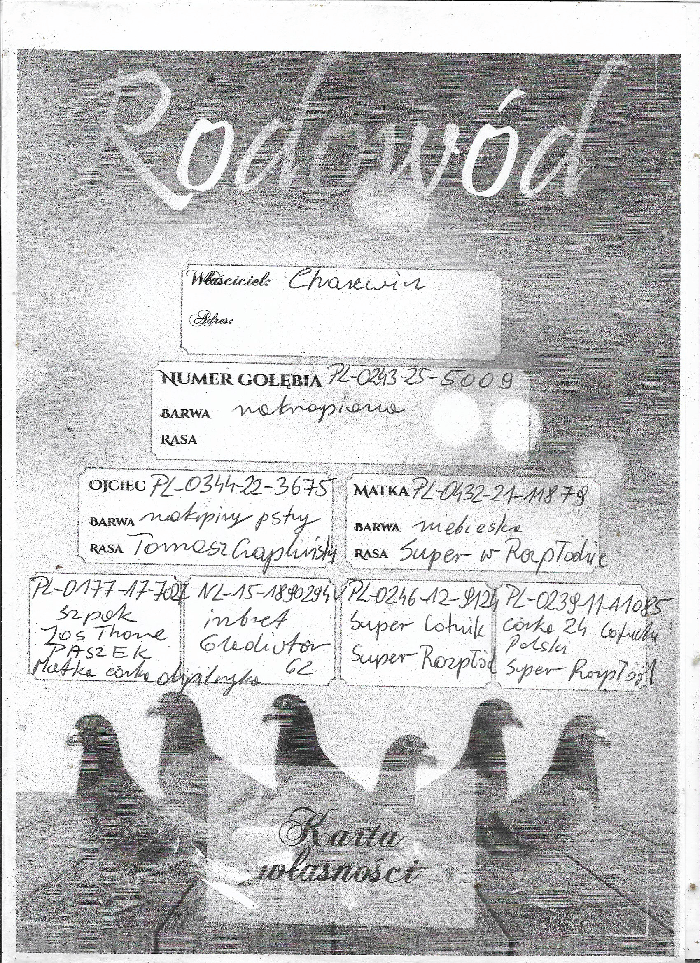 Rodowód
Właściciel: Charewicz
Adres:
NUMER GOŁĘBIA PL-0243-25-5009
BARWA nakrapiana
RASA
OJCIEC PL-0344-22-3675
BARWA nakrpiny pstry
RASA Tomasz
MATKA PL-0432-21-11879
BARWA niebieska
RASA Super w Rozpłodzie
PL-0177-17-702
szpak
Jos Thone
PASZEK
Matka córka
NL-15-1890294
inbret
Gladiator
62
PL-0246-12-9124
Super Lotnik
Super Rozpłód
PL-0239-11-11085
córka 24 Lotnika
Polski
Super Rozpłód
Karta
własności